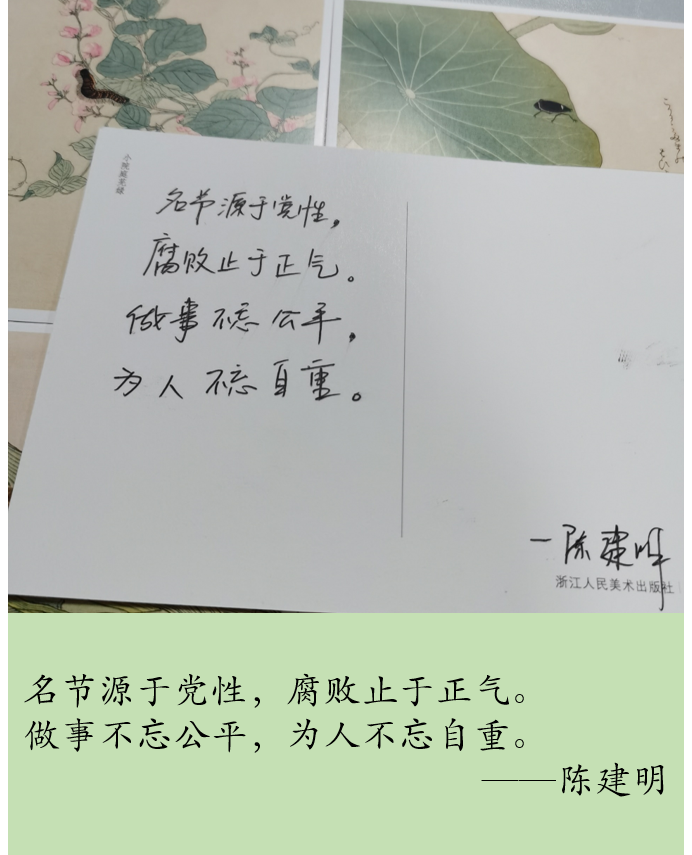 小院雨茎绿
名节源于党性，
腐败止于正气。
做事不忘公平，
为人不忘自重。
一陈建明
浙江人民美术出版社
名节源于党性，腐败止于正气。
做事不忘公平，为人不忘自重。
——陈建明